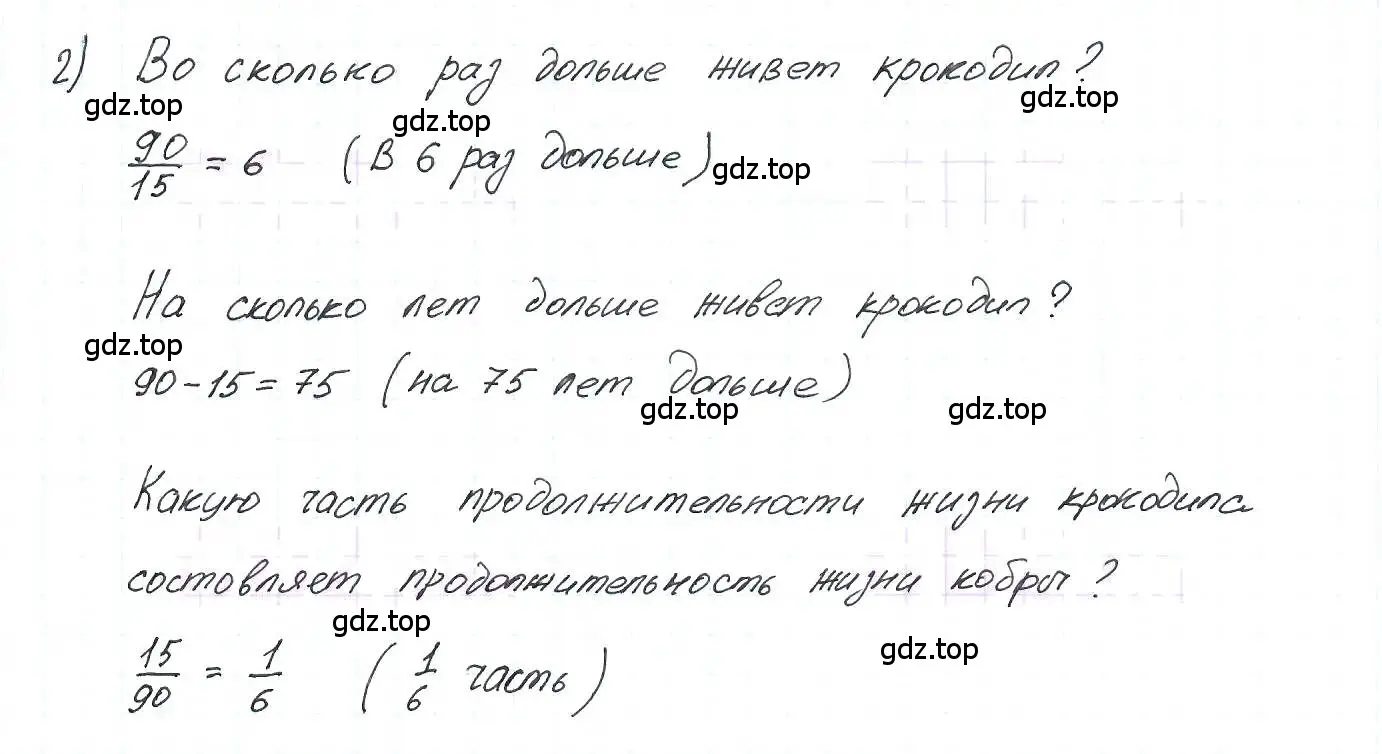 2) Во сколько раз дольше живет крокодил?
gdz.top gdz.top gdz.top
90/15 = 6 (В 6 раз дольше) gdz.top
На сколько лет дольше живет крокодил?
gdz.top
90 - 15 = 75 (на 75 лет дольше)
gdz.top gdz.top
Какую часть продолжительности жизни крокодила
состовляет продолжительность жизни кобры?
gdz.top gdz.top
15/90 = 1/6 (1/6 часть)